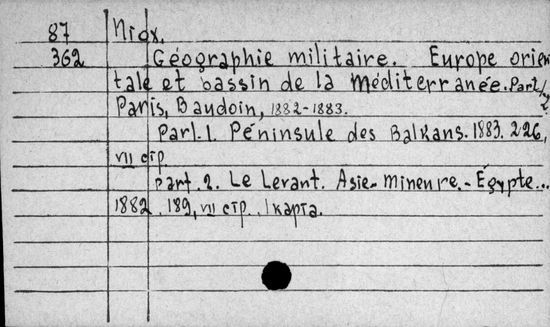 87 Niox.
362 Géographie militaire. Europe orien
tale et bassin de la Méditerranée. Part 1,
2
Paris, Baudoin, 1882-1883.
Part. 1. Péninsule des Balkans. 1883. 226,
VII стр.
Part. 2. Le Levant. Asie-mineure.-Égypte...
1882. 189, VII стр., 1 карта.